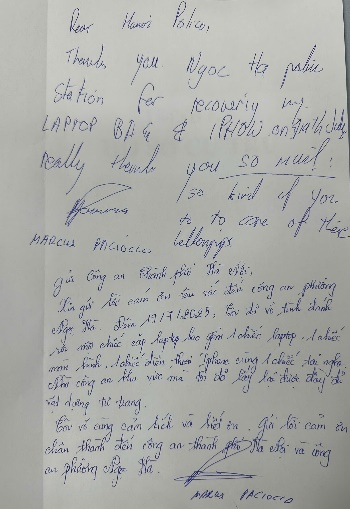 Dear Hanoi Police,
Thank you Ngoc Ha police
Station for recovery my
LAPTOP BAG & IPHONE
Really thank you so much!
so kind of you
to to care of
MARCUS PACIOCCO
gửi Công an thành phố Hà Nội.
Xin gửi lời cảm ơn sâu sắc đến công an phường
Ngọc Hà. 2025, tôi đã vô tình đánh
rơi một chiếc cặp laptop bao gồm 1 chiếc laptop, 1 chiếc
màn hình, 1 chiếc điện thoại Iphone cùng 1 chiếc tai nghe
công an khu vực mà tôi đã lấy lại được đầy đủ
tư trang.
Tôi vô cùng cảm kích và biết ơn. Gửi lời cảm ơn
chân thành đến công an thành phố Hà Nội và công
an phường Ngọc Hà.
MARCUS PACIOCCO